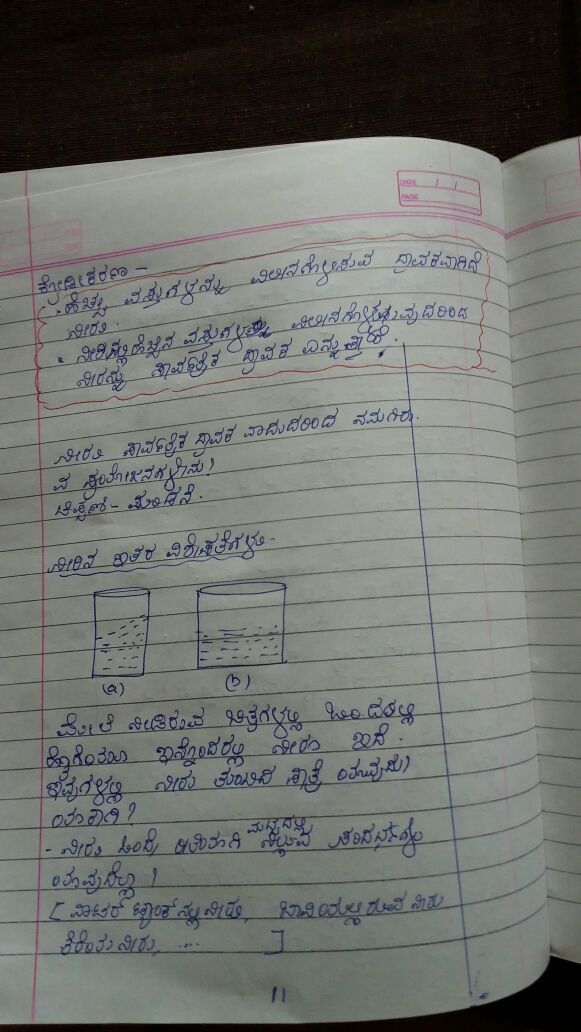 DATE
PAGE
ಕ್ರೋಢೀಕರಣ -
- ಹೆಚ್ಚು ವಸ್ತುಗಳನ್ನು ವಿಲೀನಗೊಳಿಸುವ ದ್ರಾವಕವಾಗಿದೆ
ನೀರು.
• ನೀರಿನಲ್ಲಿ ಹೆಚ್ಚಿನ ವಸ್ತುಗಳನ್ನು ವಿಲೀನಗೊಳಿಸುವುದರಿಂದ
ನೀರನ್ನು ಸಾರ್ವತ್ರಿಕ ದ್ರಾವಕ ಎನ್ನುತ್ತಾರೆ.
ನೀರು ಸಾರ್ವತ್ರಿಕ ದ್ರಾವಕ ವಾದುದರಿಂದ ನಮಗಿರು
ವ ಪ್ರಯೋಜನಗಳೇನು?
ಟಿಪ್ಪಣಿ - ಮಂಡನೆ.
ನೀರಿನ ಇತರ ವಿಶೇಷತೆಗಳು.
(a) (b)
ಮೇಲೆ ನೀಡಿರುವ ಚಿತ್ರಗಳಲ್ಲಿ ಒಂದರಲ್ಲಿ
ಹಾಗೆಯೂ ಇನ್ನೊಂದರಲ್ಲಿ ನೀರು ಇದೆ.
ಇವುಗಳಲ್ಲಿ ನೀರು ತುಂಬಿದ ಪಾತ್ರೆ ಯಾವುದು?
ಯಾಕಾಗಿ?
- ನೀರು ಒಂದೇ ಮಟ್ಟದಲ್ಲಿ ನಿಲ್ಲುವ ಸಂದರ್ಭಗಳು
ಯಾವುದೆಲ್ಲಾ?
[ವಾಟರ್ ಟ್ಯಾಂಕ್ ನಲ್ಲಿ ನೀರು, ಬಾವಿಯಲ್ಲಿರುವ ನೀರು
ಕೆರೆಯ ನೀರು, .... ]
11